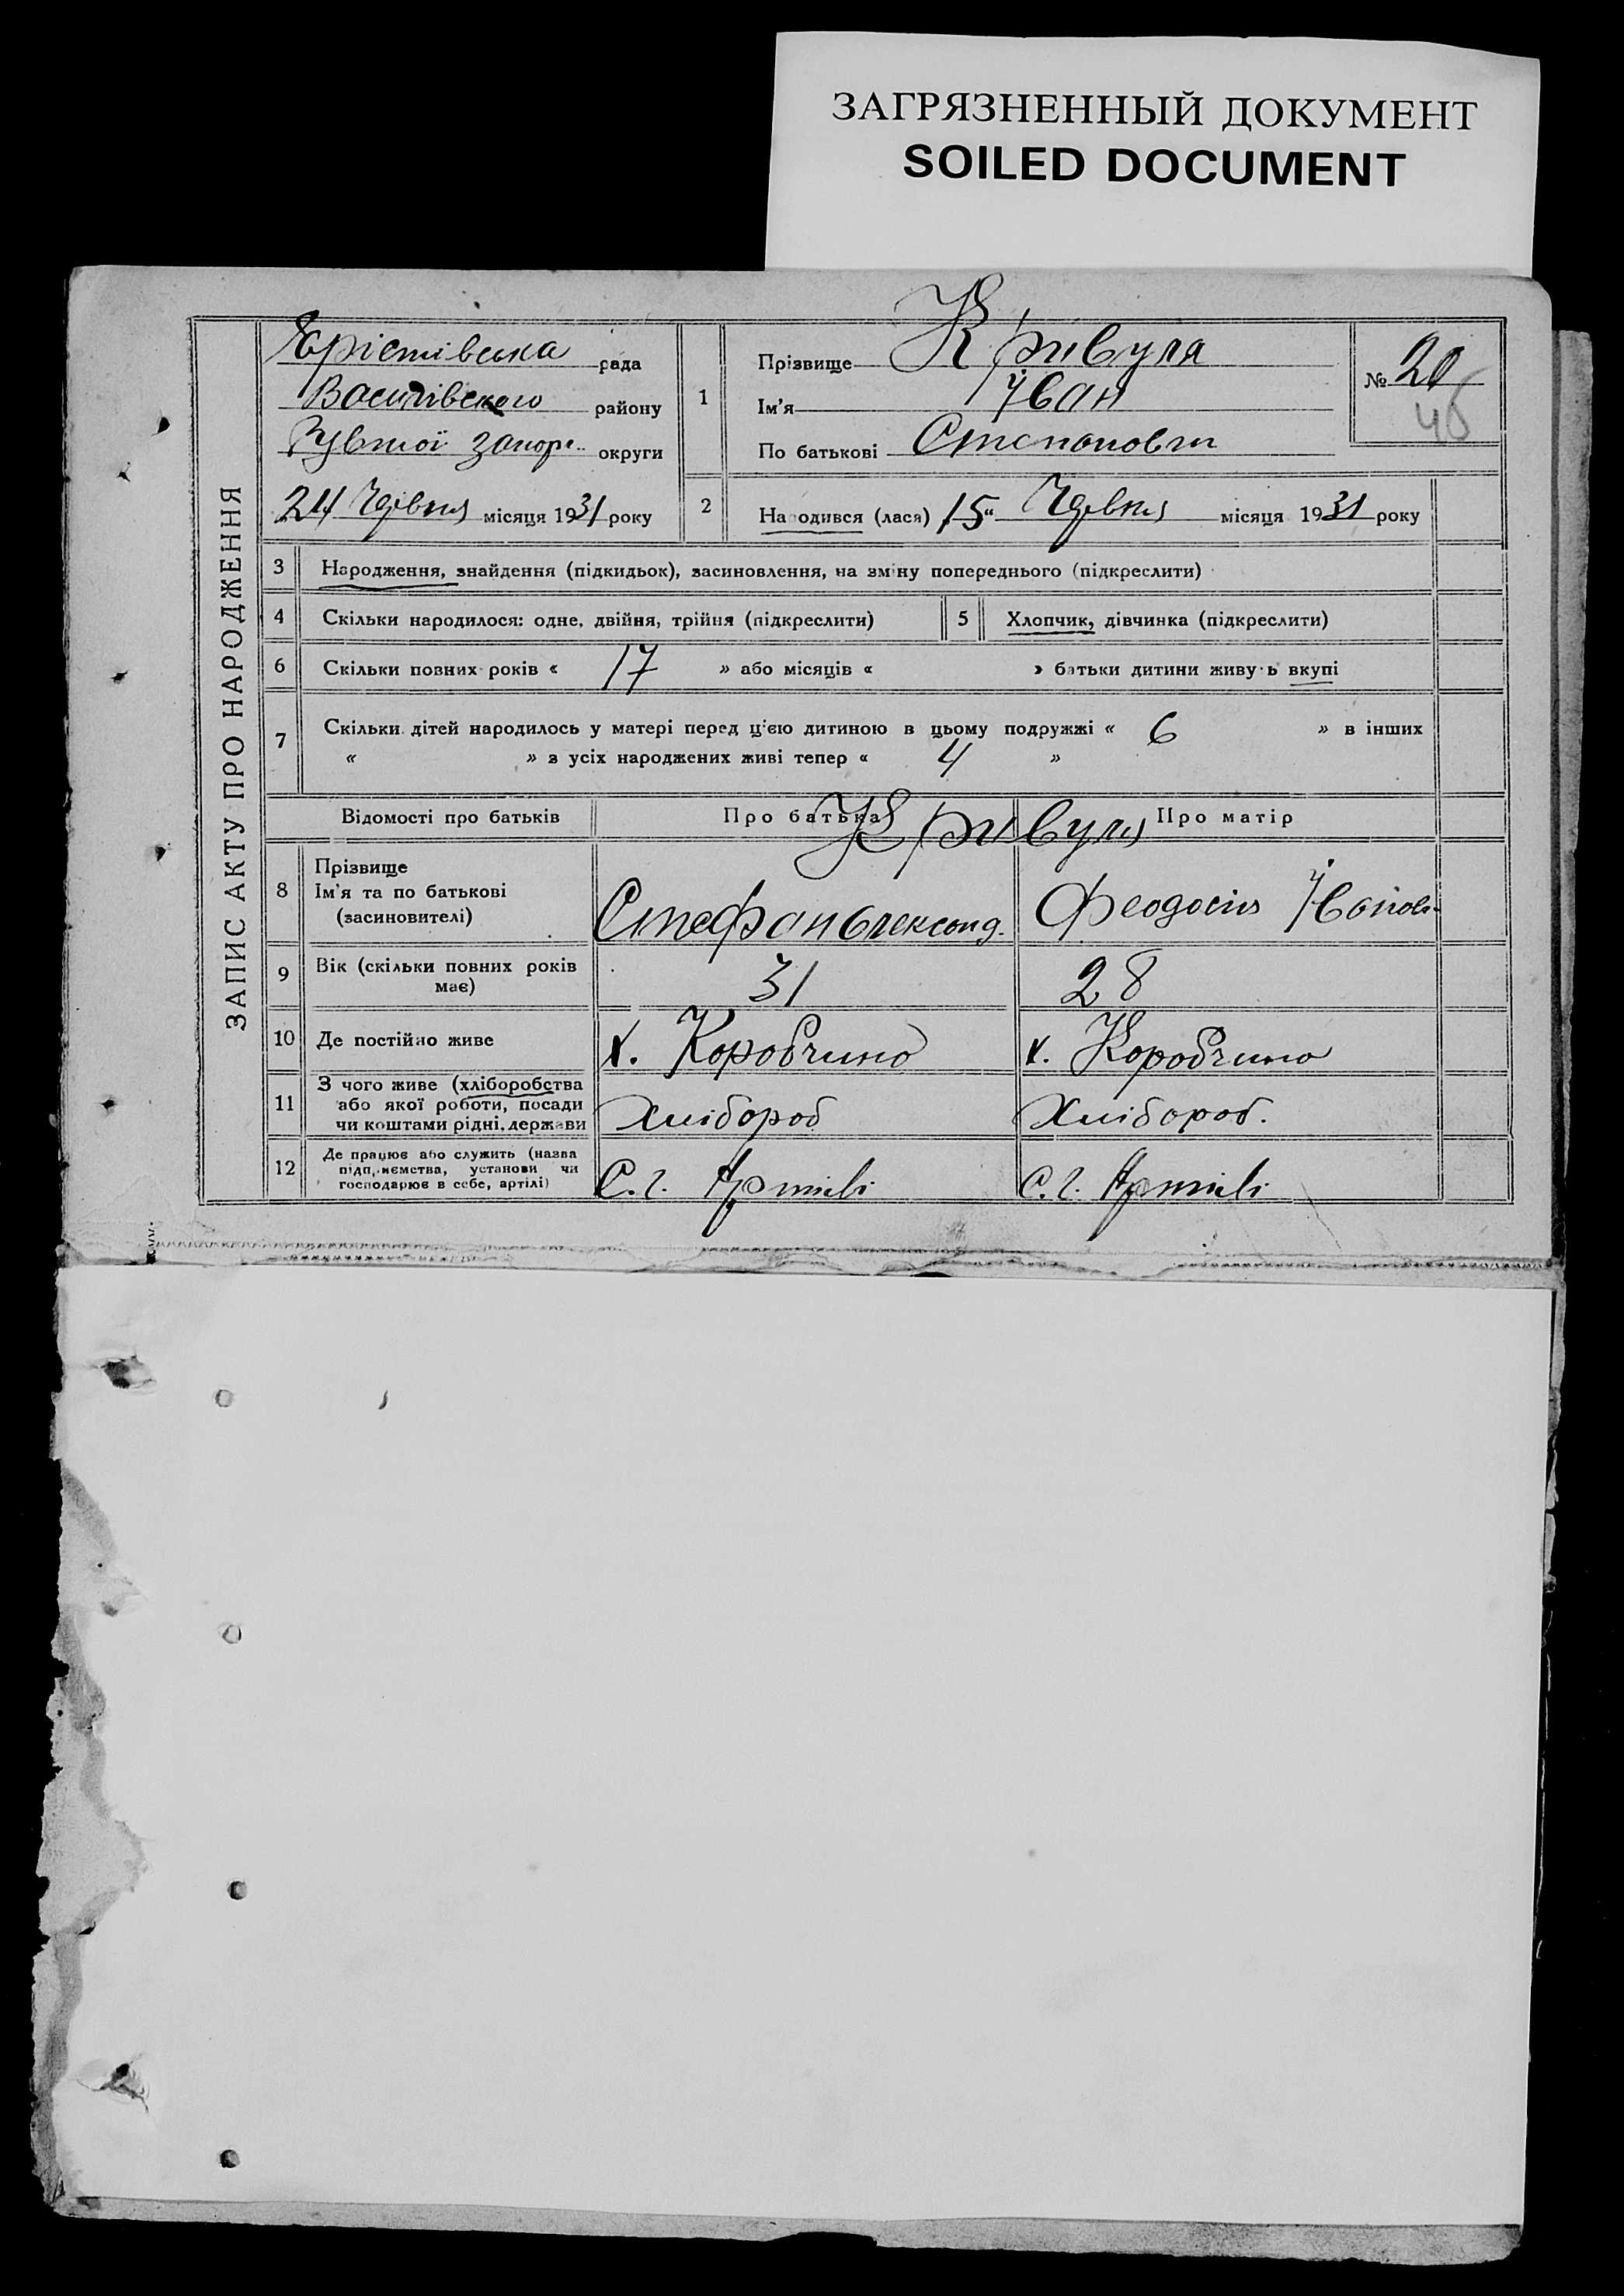 ЗАГРЯЗНЕННЫЙ ДОКУМЕНТ
SOILED DOCUMENT
ЗАПИС АКТУ ПРО НАРОДЖЕННЯ
рада
Василівського району
округи
24 Червня місяця 1931 року
1
Прізвище Кривуля
Ім'я Іван
По батькові Степанович
№ 20
45
2
Народився (лася) „15“ Червня місяця 1931 року
3 Народження, знайдення (підкидьок), засиновлення, на зміну попереднього (підкреслити)
4 Скільки народилося: одне, двійня, трійня (підкреслити)
5 Хлопчик, дівчинка (підкреслити)
6 Скільки повних років « 17 » або місяців « » батьки дитини живуть вкупі
7 Скільки дітей народилось у матері перед цією дитиною в цьому подружжі « 6 » в інших
« » з усіх народжених живі тепер « 4 »
Відомості про батьків Про батька Про матір
Кривуля
8 Прізвище
Ім'я та по батькові
(засиновителі)
Стефан Олександ. Феодосия
9 Вік (скільки повних років
має)
31 28
10 Де постійно живе х. Коробчино х. Коробчино
11 З чого живе (хліборобства
або якої роботи, посади
чи коштами рідні, держави
Хлібороб Хлібороб.
12 Де працює або служить (назва
підприємства, установи чи
господарює в себе, артілі)
С.г. Артілі С.г. Артілі